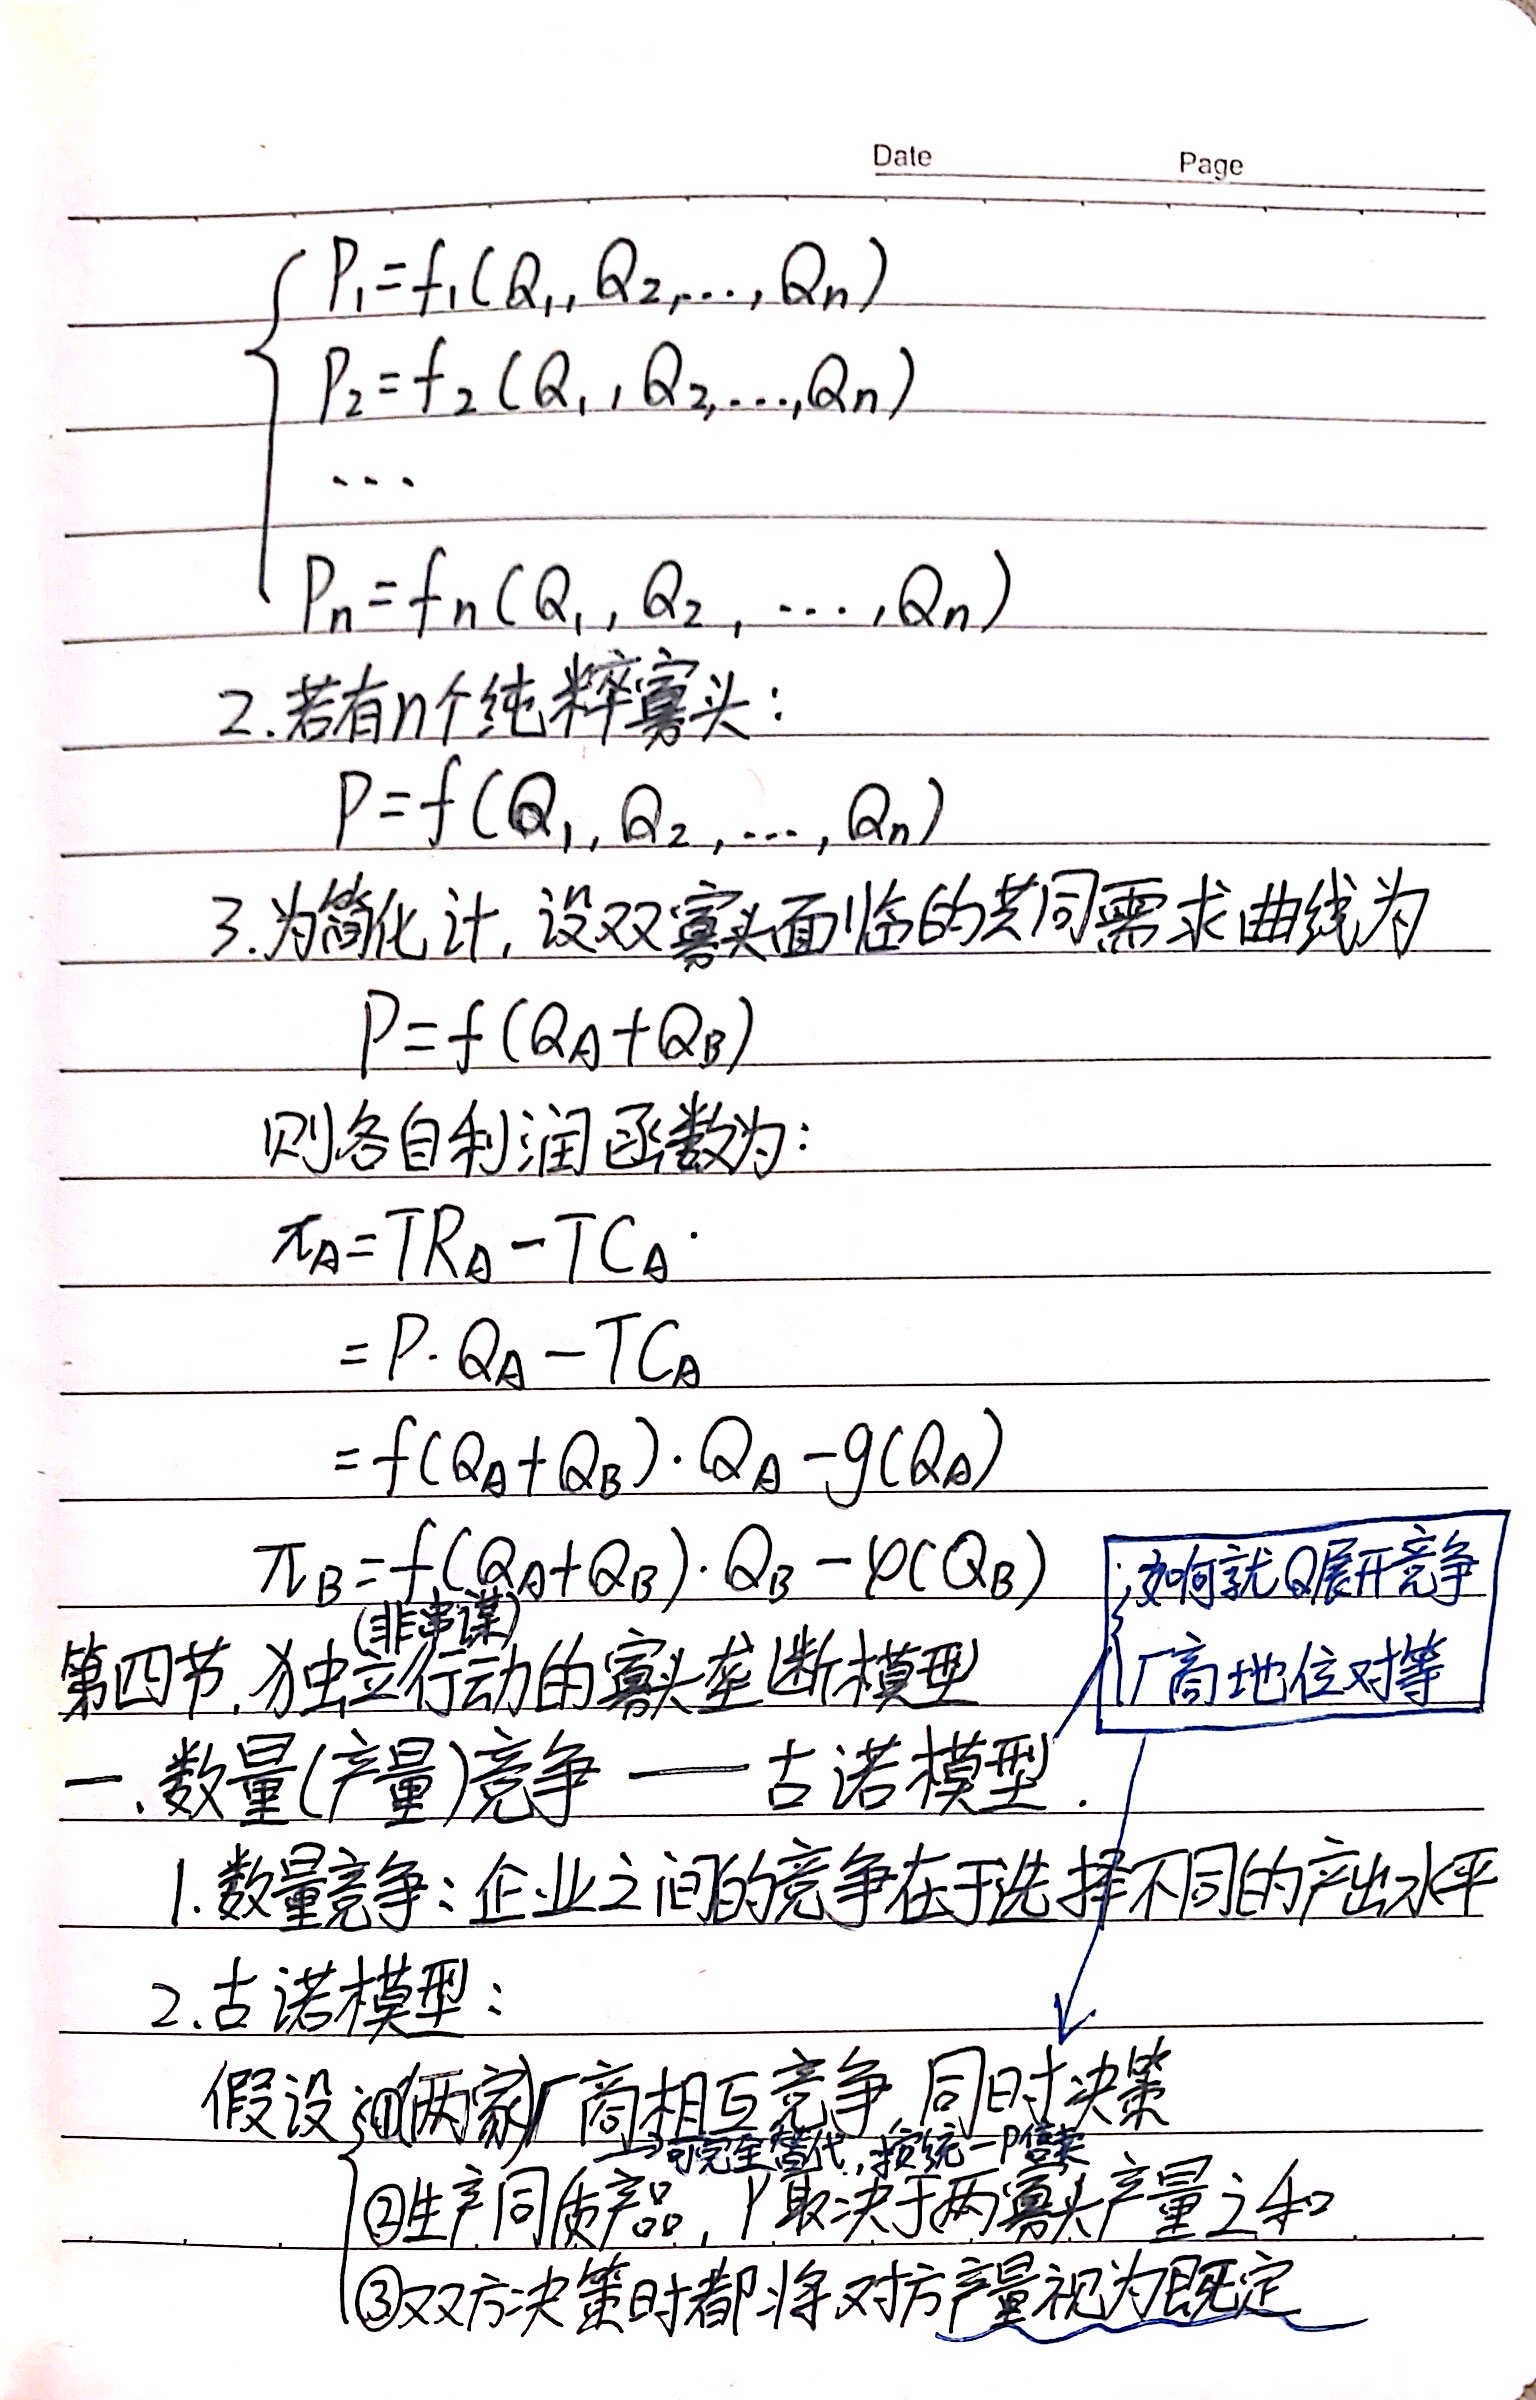 Date Page
P₁=f₁(Q₁,Q₂,...,Qn)
P₂=f₂(Q₁,Q₂,...,Qn)
...
Pn=fn(Q₁,Q₂,....,Qn)
2.若有n个纯粹寡头:
P=f(Q₁,Q₂,...,Qn)
3.为简化计,设双寡头面临的共同需求曲线为
P=f(QA+QB)
则各自利润函数为:
πA=TRA-TCA.
=P·QA-TCA
=f(QA+QB)·QA-g(QA)
πB=f(QA+QB)·QB-φ(QB)
如何就Q展开竞争
厂商地位对等
(非串谋)
第四节.独立行动的寡头垄断模型
一.数量(产量)竞争——古诺模型.
1.数量竞争:企业之间的竞争在于选择不同的产出水平
2.古诺模型:
假设:①(两家)厂商相互竞争,同时决策
→可完全替代,按统一P售卖
②生产同质产品,P取决于两寡头产量之和
③双方决策时都将对方产量视为既定